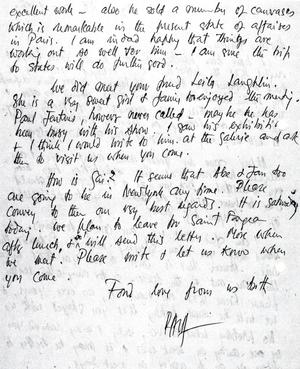 excellent work – also he sold a number of canvases
which is remarkable in the present state of affairs
in Paris. I am indeed happy that things are
working out so well for him – I am sure the trip
to States will do further good.
We did meet your friend Leila Laughlin.
She is a very sweet girl & Janine enjoyed the meeting.
Paul never called – maybe he has
been busy with his show. I saw his exhibition
& I think I would write to him at the Galerie and ask
to visit us when you come.
How is It seems that Abe & Jan too
are going to be in New York any time. Please
convey to them our very best regards. It is saturday
today. We plan to leave for Saint
after lunch & will send this letter. More when
we meet. Please write & let us know when
you come.
Fond love from us both